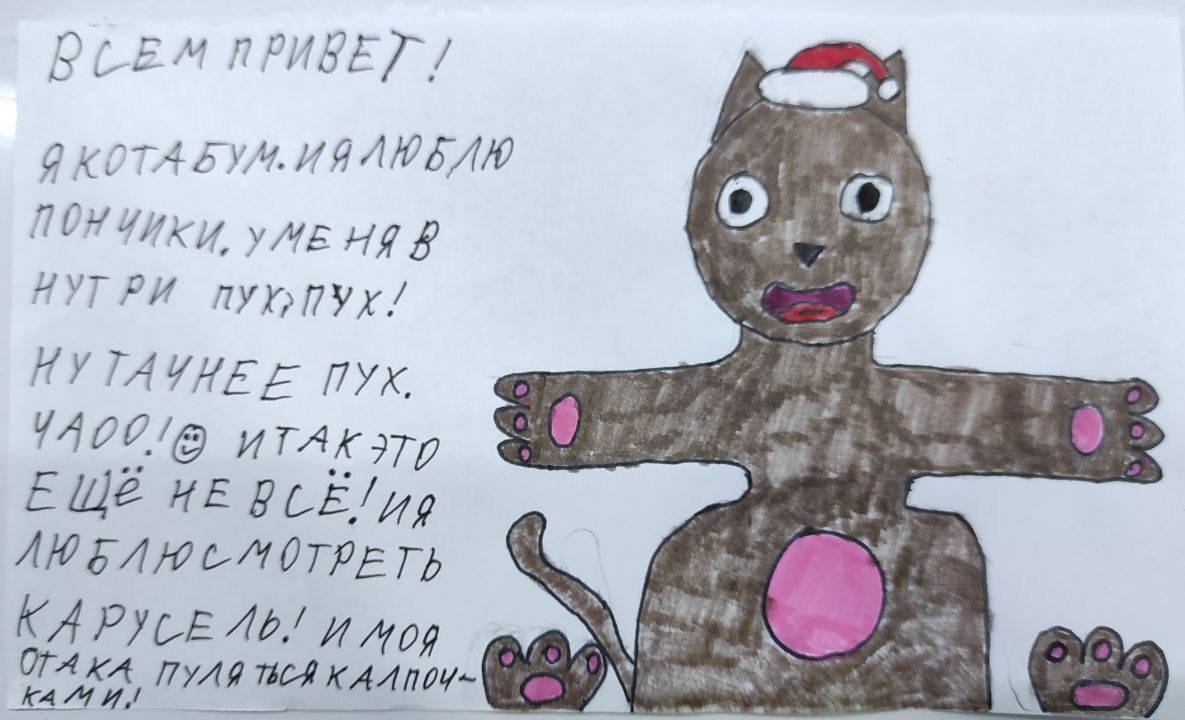 ВСЕМ ПРИВЕТ!
Я КОТАБУМ. И Я ЛЮБЛЮ
ПОНЧИКИ. У МЕНЯ В
НУТРИ ПУХ, ПУХ!
НУ ТАЧНЕЕ ПУХ.
ЧАОО!☺ И ТАК ЭТО
ЕЩЁ НЕ ВСЁ! И Я
ЛЮБЛЮ СМОТРЕТЬ
КАРУСЕЛЬ! И МОЯ
ОТАКА ПУЛЯТЬСЯ КАЛПОЧ-
КАМИ!